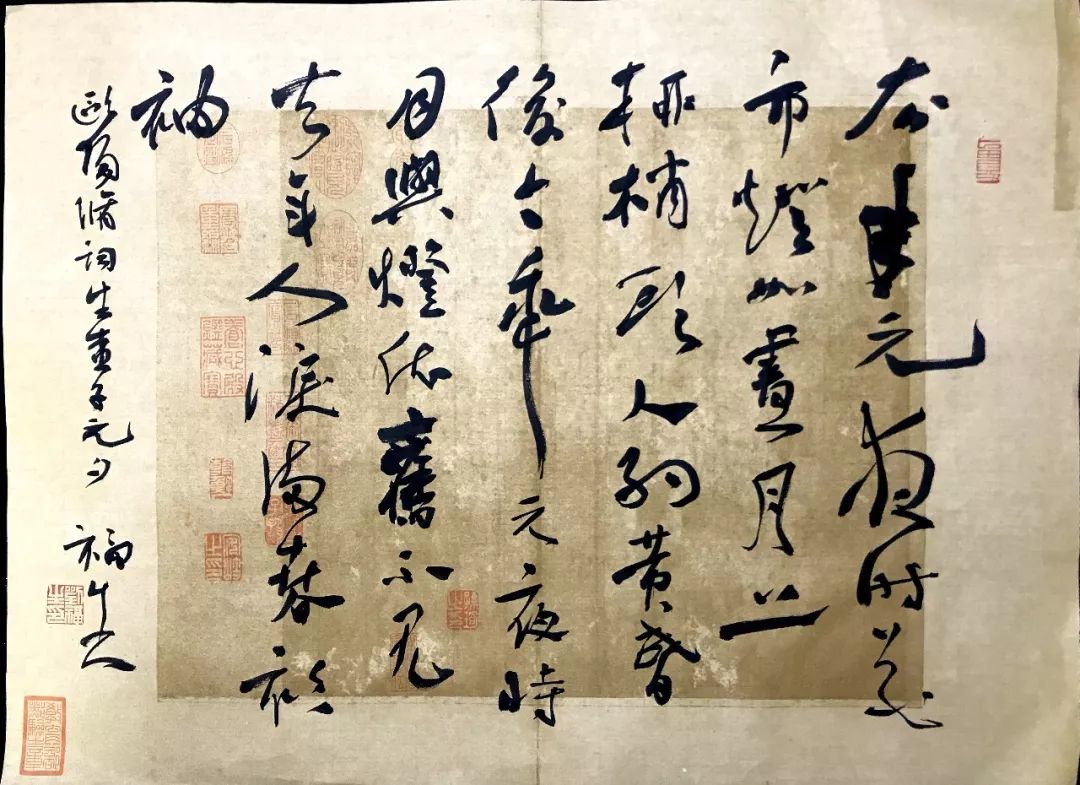 去年元夜时花
市燈如晝月上
柳梢頭人約黄昏
後今年元夜時
月與燈依舊不見
去年人淚滿春衫
袖
歐陽脩詞生查子元夕
福生书